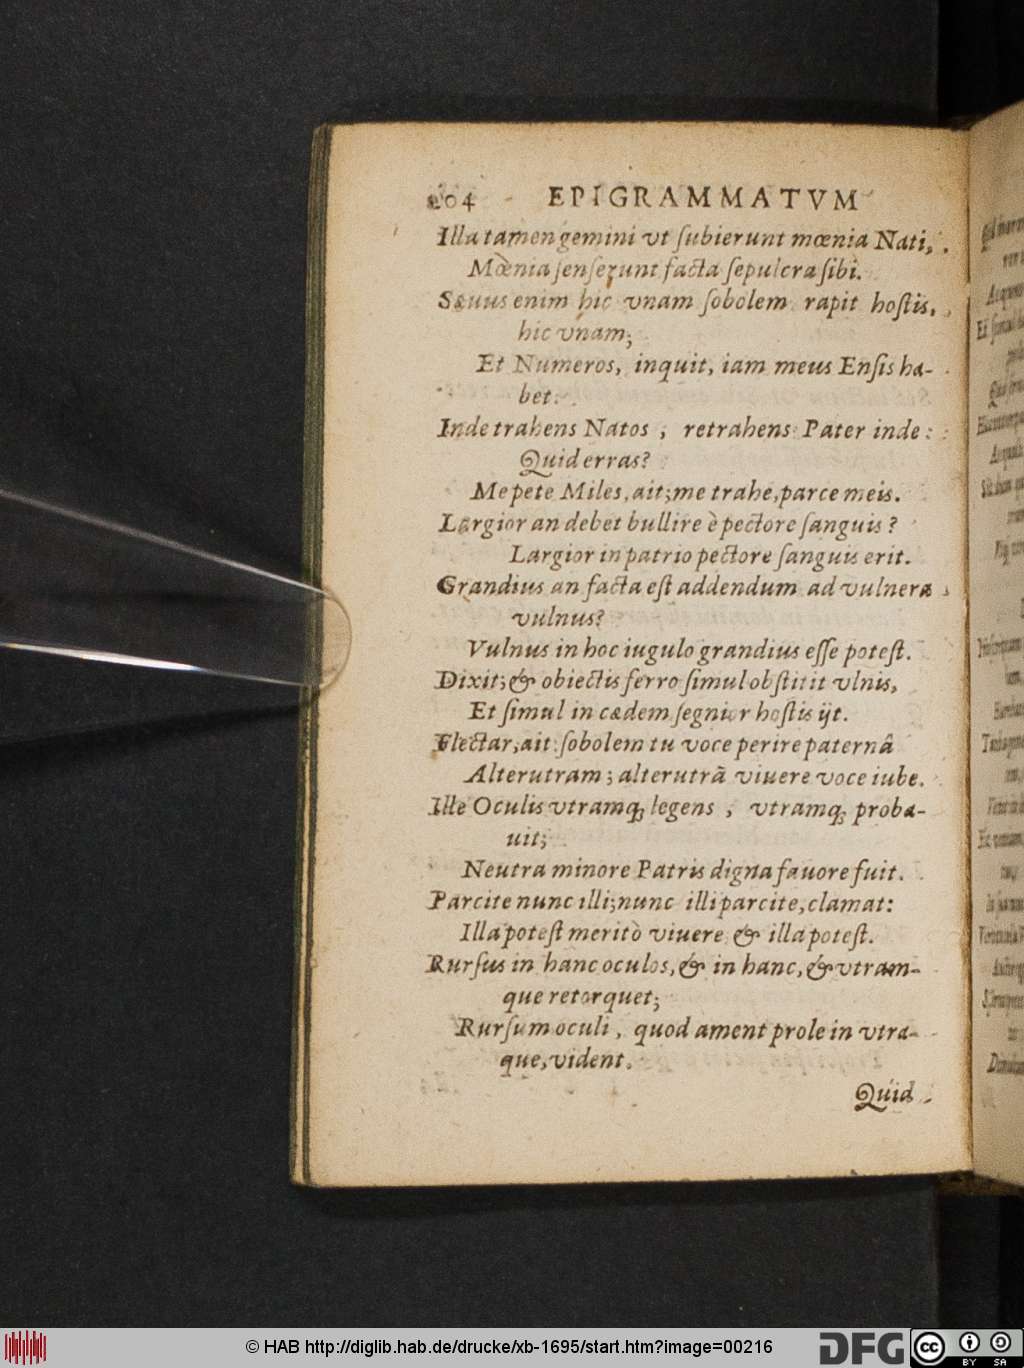 204 EPIGRAMMATVM
Illa tamen gemini vt ſubierunt mœnia Nati,
Mœnia ſenſerunt facta ſepulcra ſibi.
Sæuus enim hic vnam ſobolem rapit hoſtis,
hic vnam;
Et Numeros, inquit, iam meus Enſis ha-
bet.
Inde trahens Natos, retrahens Pater inde:
Quid erras?
Me pete Miles, ait; me trahe, parce meis.
Largior an debet bullire è pectore ſanguis?
Largior in patrio pectore ſanguis erit.
Grandius an facta eſt addendum ad vulnera
vulnus?
Vulnus in hoc iugulo grandius eſſe poteſt.
Dixit; & obiectis ferro ſimul obſtitit vlnis,
Et ſimul in cædem ſegnior hoſtis ijt.
Flectar, ait: ſobolem tu voce perire paternâ
Alterutram; alterutrã viuere voce iube.
Ille Oculis vtramq; legens, vtramq; proba-
uit;
Neutra minore Patris digna fauore fuit.
Parcite nunc illi; nunc illi parcite, clamat:
Illa poteſt meritò viuere & illa poteſt.
Rurſus in hanc oculos, & in hanc, & vtram-
que retorquet;
Rurſum oculi, quod ament prole in vtra-
que, vident.
Quid
© HAB http://diglib.hab.de/drucke/xb-1695/start.htm?image=00216
DFG
cc
BY SA